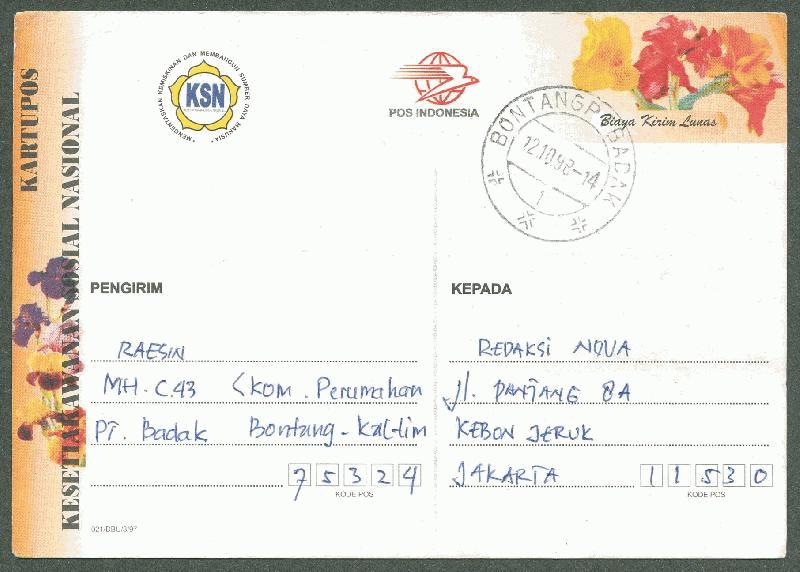 KARTUPOS
KESETIAKAWANAN SOSIAL NASIONAL
MENGENTASKAN KEMISKINAN DAN MEMBANGUN SUMBER DAYA MANUSIA
KSN
POS INDONESIA
Biaya Kirim Lunas
BONTANGPT BADAK
12.10.98-14
1
PENGIRIM
RAESIN
MH. C43 (KOM. Perumahan
PT. Badak Bontang - Kaltim
75324
KODE POS
021/DBL/3/97
KEPADA
REDAKSI NOVA
Jl. PANJANG 8A
KEBON JERUK
JAKARTA 11530
KODE POS